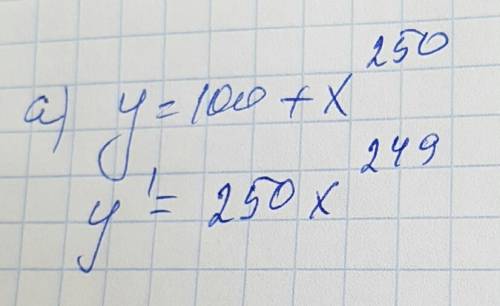 а) y = 100 + x^250
y' = 250x^249